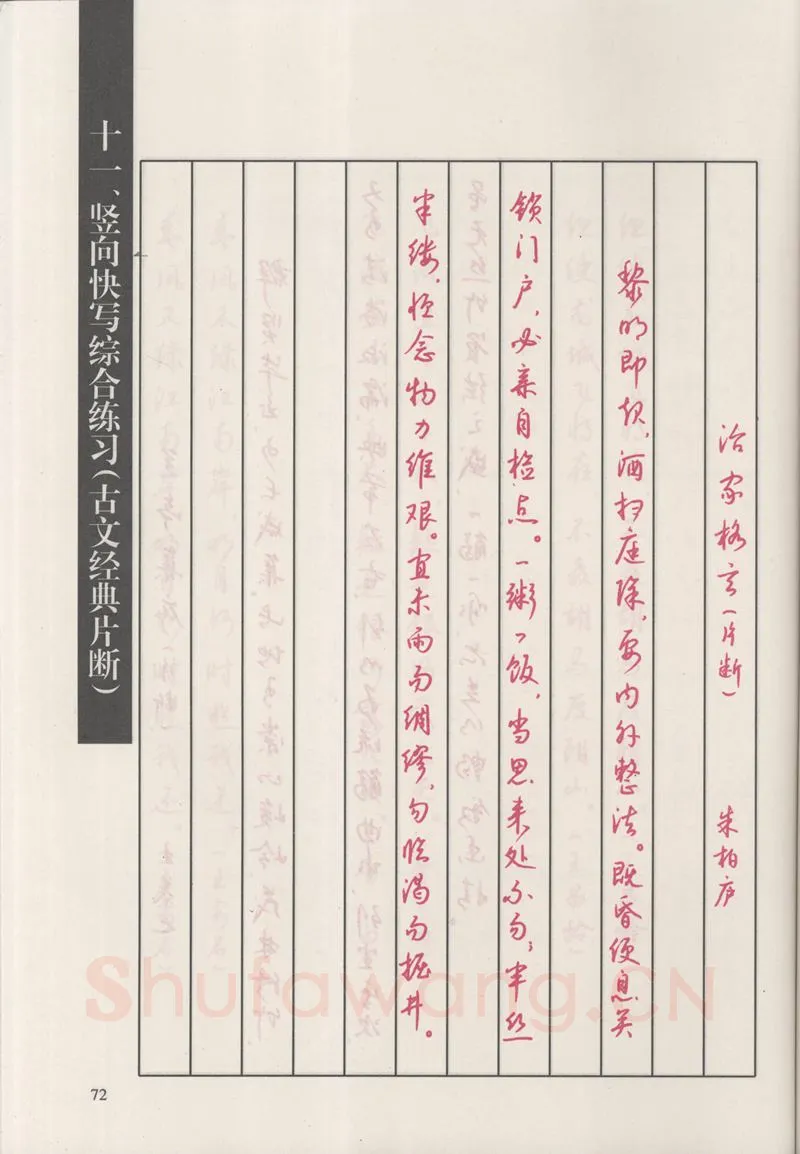 十一、竖向快写综合练习(古文经典片断)
治家格言(片断) 朱柏庐
黎明即起,洒扫庭除,要内外整洁。既昏便息关
锁门户,必亲自检点。一粥一饭,当思来处不易;半丝
半缕,恒念物力维艰。宜未雨而绸缪,勿临渴而掘井。
Shufawang.CN
72